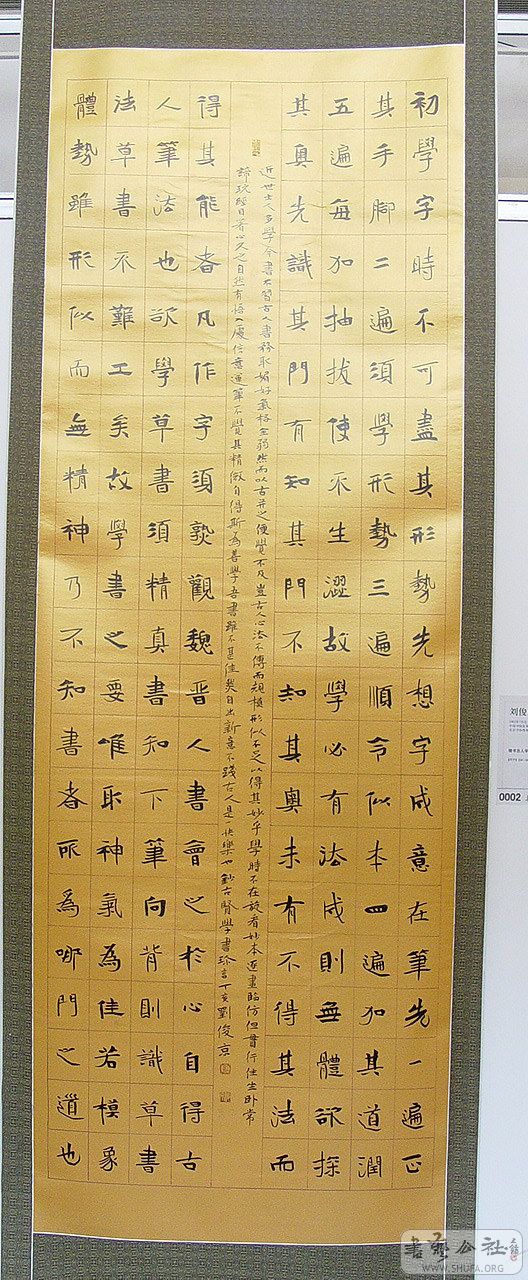 初學字時不可盡其形勢先想字成意在筆先一遍正
其手腳二遍須學形勢三遍順令似本四遍加其遒潤
五遍每加抽拔使不生澀故學必有法成則無體欲探
其奧先識其門有知其門不知其奧未有不得其法而
近世士人多學今書不習古人書務取媚好氣格全弱然而以古并之便覺不及豈古人心法不傳而規模形似不足以得其妙乎學時不在旋看妙本逐畫臨仿但貴行住坐臥常
諦玩經目著心久之自然有悟入處信意運筆不覺其精微自得斯為善學吾書雖不甚佳然自出新意不踐古人是一快樂也鈔古賢學書珍言丁亥劉俊京
得其能者凡作字須熟觀魏晉人書會之於心自得古
人筆法也欲學草書須精真書知下筆向背則識草書
法草書不難工矣故學書之要唯取神氣為佳若模象
體勢雖形似而無精神乃不知書者所為耶門之道也
刘俊
0002
書藝公社
WWW.SHUFA.ORG